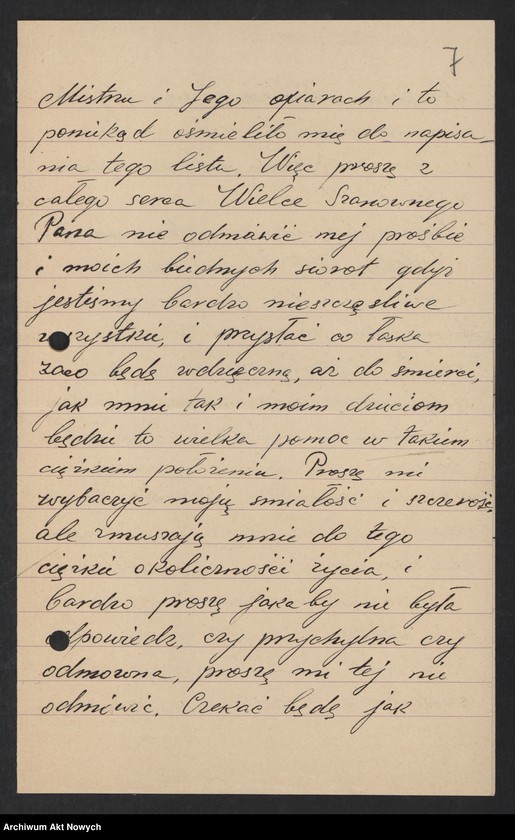 7
Mistrzu i Jego ofiarach i to
poniekąd ośmieliło mię do napisa-
nia tego listu. Więc proszę z
całego serca Wielce Szanownego
Pana nie odmówić mej prośbie
i moich biednych sierot gdyż
jesteśmy bardzo nieszczęśliwe
wszystkie, i przysłać co łaska
zaco będę wdzięczną, aż do śmierci,
jak mnie tak i moim dzieciom
będzie to wielka pomoc w takiem
ciężkiem położeniu. Proszę mi
wybaczyć moją śmiałość i szczerość,
ale zmuszają mnie do tego
ciężkie okoliczności życia, i
bardzo proszę jaka by nie była
odpowiedź, czy przychylna czy
odmowna, proszę mi tej nie
odmówić. Czekać będę jak
Archiwum Akt Nowych